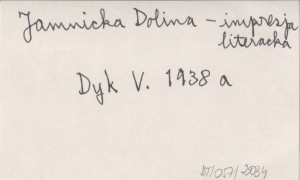 Jamnicka Dolina – impresja
literacka
Dyk V. 1938 a